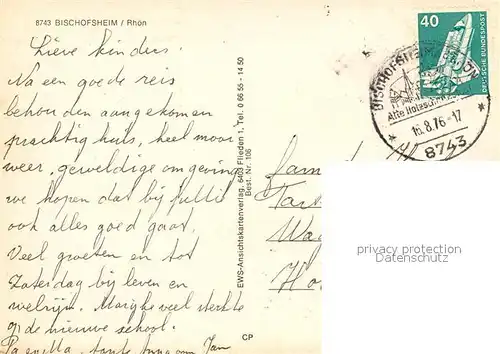 8743 BISCHOFSHEIM / Rhön
Lieve kinders.
Na een goede reis
behouden aangekomen
prachtig huis, heel mooi
weer, geweldige omgeving
we hopen dat bij jullie
ook alles goed gaat.
Veel groeten en tot
Zaterdag bij leven en
welzijn. Marijke veel sterkte
op de nieuwe school.
Pa en Ma, tante en Jan
EWS-Ansichtskartenverlag, 6403 Flieden 1, Tel. 0 66 55 - 14 50
Best. Nr. 106
CP
40
DEUTSCHE BUNDESPOST
BISCHOFSHEIM RHÖN
16.8.76-17
8743
Fam
privacy protection
for sammler.com